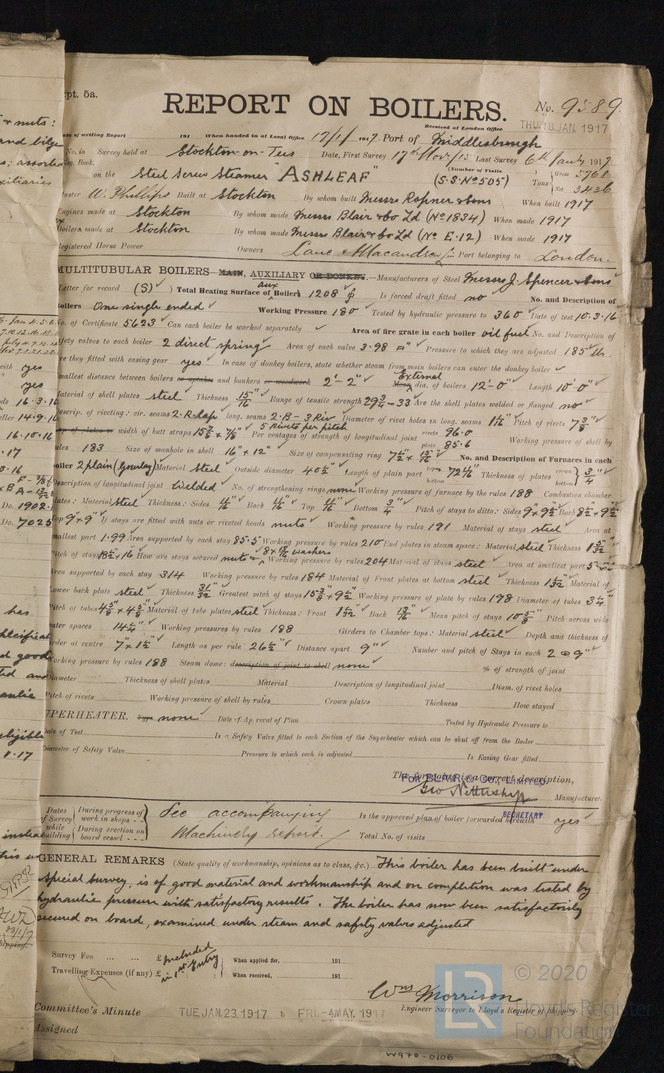 pt. 5a.
REPORT ON BOILERS.
No. 9589
Received at London Office THU. 18 JAN 1917
Date of writing Report 191 When handed in at Local Office 17/1/1917. Port of Middlesbrough
No. in Survey held at Stockton-on-Tees Date, First Survey 17th Nov/15 Last Survey 6th Jany 1917
Book. (Number of Visits
on the Steel Screw Steamer "ASHLEAF" (S.S. No 505) Tons Gross 5768 Net 3436
Master W. Phillips Built at Stockton By whom built Messrs Ropner & Sons When built 1917
Engines made at Stockton By whom made Messrs Blair & Co Ld (No 1834) When made 1917
Boilers made at Stockton By whom made Messrs Blair & Co Ld (No E.12) When made 1917
Registered Horse Power Owners Lane & Macandrew Port belonging to London
MULTITUBULAR BOILERS MAIN, AUXILIARY OR DONKEY. Manufacturers of Steel Messrs J. Spencer & Sons
Letter for record (S) Total Heating Surface of aux Boilers 1208 Is forced draft fitted no No. and Description of
Boilers One single ended Working Pressure 180 Tested by hydraulic pressure to 360 Date of test 10.3.16
No. of Certificate 5623 Can each boiler be worked separately ✓ Area of fire grate in each boiler oil fuel No. and Description of
safety valves to each boiler 2 direct spring Area of each valve 3.98 Pressure to which they are adjusted 185 lb.
Are they fitted with easing gear yes In case of donkey boilers, state whether steam from main boilers can enter the donkey boiler ✓
Smallest distance between boilers or uptakes and bunkers or woodwork 2'-2" External dia. of boilers 12'-0" Length 10'-0"
Material of shell plates steel Thickness 15/16" Range of tensile strength 29¾-33 Are the shell plates welded or flanged no
Descrip. of riveting: cir. seams 2.R.lap long. seams 2.B-3 Riv Diameter of rivet holes in long. seams 1⅛" Pitch of rivets 7⅞"
5 Rivets per pitch
width of butt straps 15⅞ × ⅞" Per centages of strength of longitudinal joint rivets 96.0 plate 85.6 Working pressure of shell by
rules 183 Size of manhole in shell 16" × 12" Size of compensating ring No. and Description of Furnaces in each
boiler 2 plain (Gourlay) Material Steel Outside diameter 40½" Length of plain part top 72½" bottom Thickness of plates crown bottom ¾"
Description of longitudinal joint Welded No. of strengthening rings none Working pressure of furnace by the rules 188 Combustion chamber
plates: Material Steel Thickness: Sides Back Top Bottom ¾" Pitch of stays to ditto: Sides 9" × 9½" Back 8½" × 9½"
Top 9" × 9" If stays are fitted with nuts or riveted heads nuts Working pressure by rules 191 Material of stays steel Area at
smallest part 1.99 Area supported by each stay 85.5 Working pressure by rules 210 End plates in steam space: Material steel Thickness 1 5/32"
Pitch of stays 18½ × 16 How are stays secured nuts & washers Working pressure by rules 204 Material of stays steel Area at smallest part
Area supported by each stay 314 Working pressure by rules 184 Material of Front plates at bottom steel Thickness 1 3/32" Material of
Lower back plate steel Thickness 31/32" Greatest pitch of stays Working pressure of plate by rules 198 Diameter of tubes 3¼"
Pitch of tubes Material of tube plates steel Thickness: Front 1 3/32" Back 13/16" Mean pitch of stays 10⅝" Pitch across wide
water spaces 14¼" Working pressures by rules 188 Girders to Chamber tops: Material steel Depth and thickness of
girder at centre 7" × 1½" Length as per rule 26½" Distance apart 9" Number and pitch of Stays in each 2 @ 9"
Working pressure by rules 188 Steam dome: description of joint to shell none % of strength of joint
Diameter Thickness of shell plates Material Description of longitudinal joint Diam. of rivet holes
Pitch of rivets Working pressure of shell by rules Crown plates Thickness How stayed
UPERHEATER. none Date of Approval of Plan Tested by Hydraulic Pressure to
Date of Test Is a Safety Valve fitted to each Section of the Superheater which can be shut off from the Boiler
Diameter of Safety Valve Pressure to which each is adjusted Is Easing Gear fitted
The foregoing is a correct description,
FOR BLAIR & CO., LIMITED
Geo Nettership Manufacturer.
SECRETARY
Dates of Survey while building During progress of work in shops - - During erection on board vessel - - - See accompanying Machinery report. Is the approved plan of boiler forwarded herewith yes
Total No. of visits
GENERAL REMARKS (State quality of workmanship, opinions as to class, &c.) This boiler has been built under
special survey, is of good material and workmanship and on completion was tested by
hydraulic pressure with satisfactory results. The boiler has now been satisfactorily
secured on board, examined under steam and safety valves adjusted
Survey Fee ... ... £ included When applied for, 191
Travelling Expenses (if any) £ When received, 191
Wm Morrison
Engineer Surveyor to Lloyd's Register of Shipping.
Committee's Minute TUE. JAN. 23. 1917 FRI. -4 MAY. 1917
Assigned
W970-0106
LR
© 2020
Lloyd's Register
Foundation